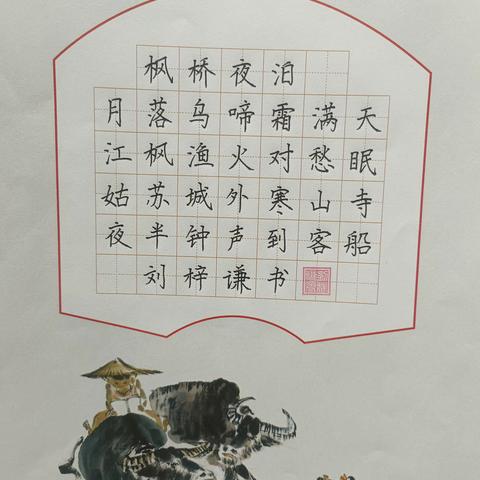 枫桥夜泊
月落乌啼霜满天
江枫渔火对愁眠
姑苏城外寒山寺
夜半钟声到客船
刘梓谦书